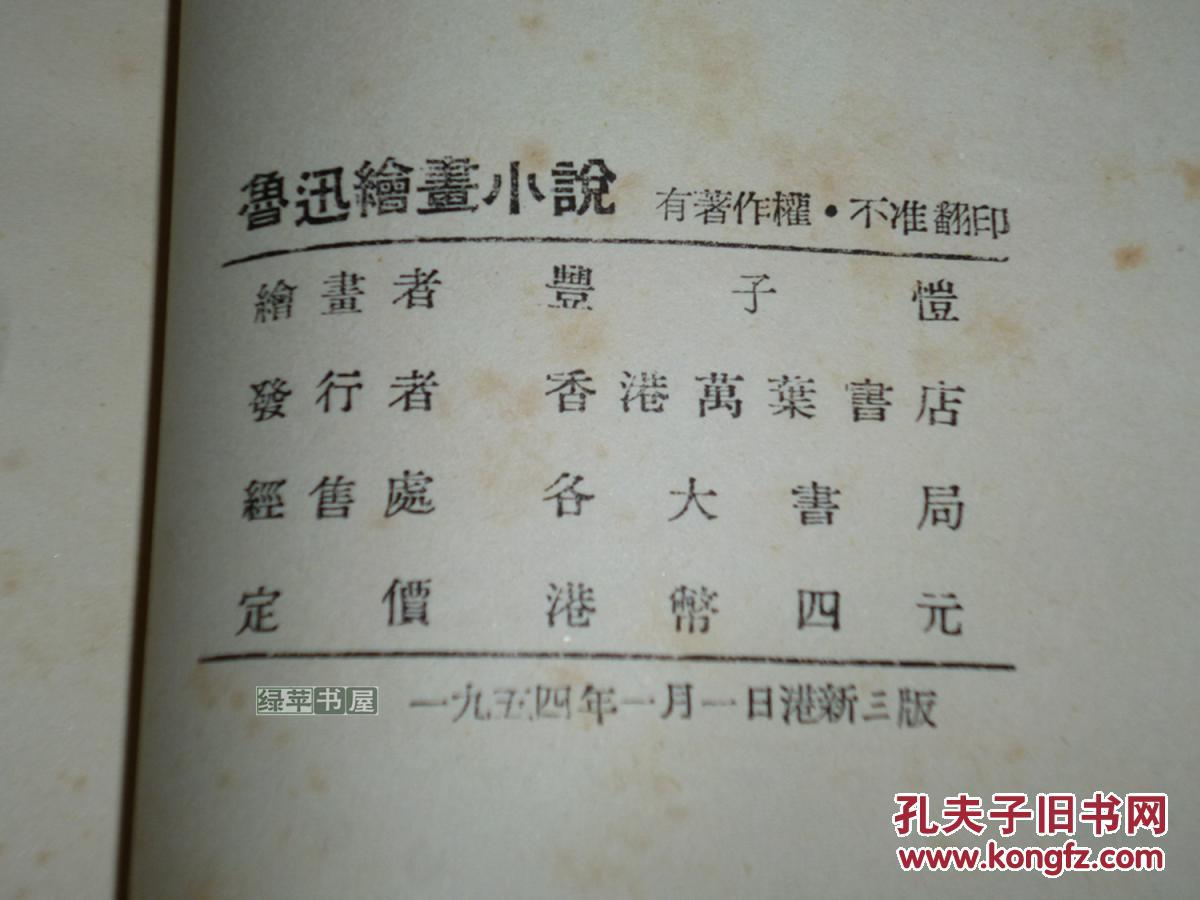 魯迅繪畫小說 有著作權·不准翻印
繪畫者 豐子愷
發行者 香港萬葉書店
經售處 各大書局
定價 港幣四元
一九五四年一月一日港新三版
绿苹书屋
孔夫子旧书网
www.kongfz.com